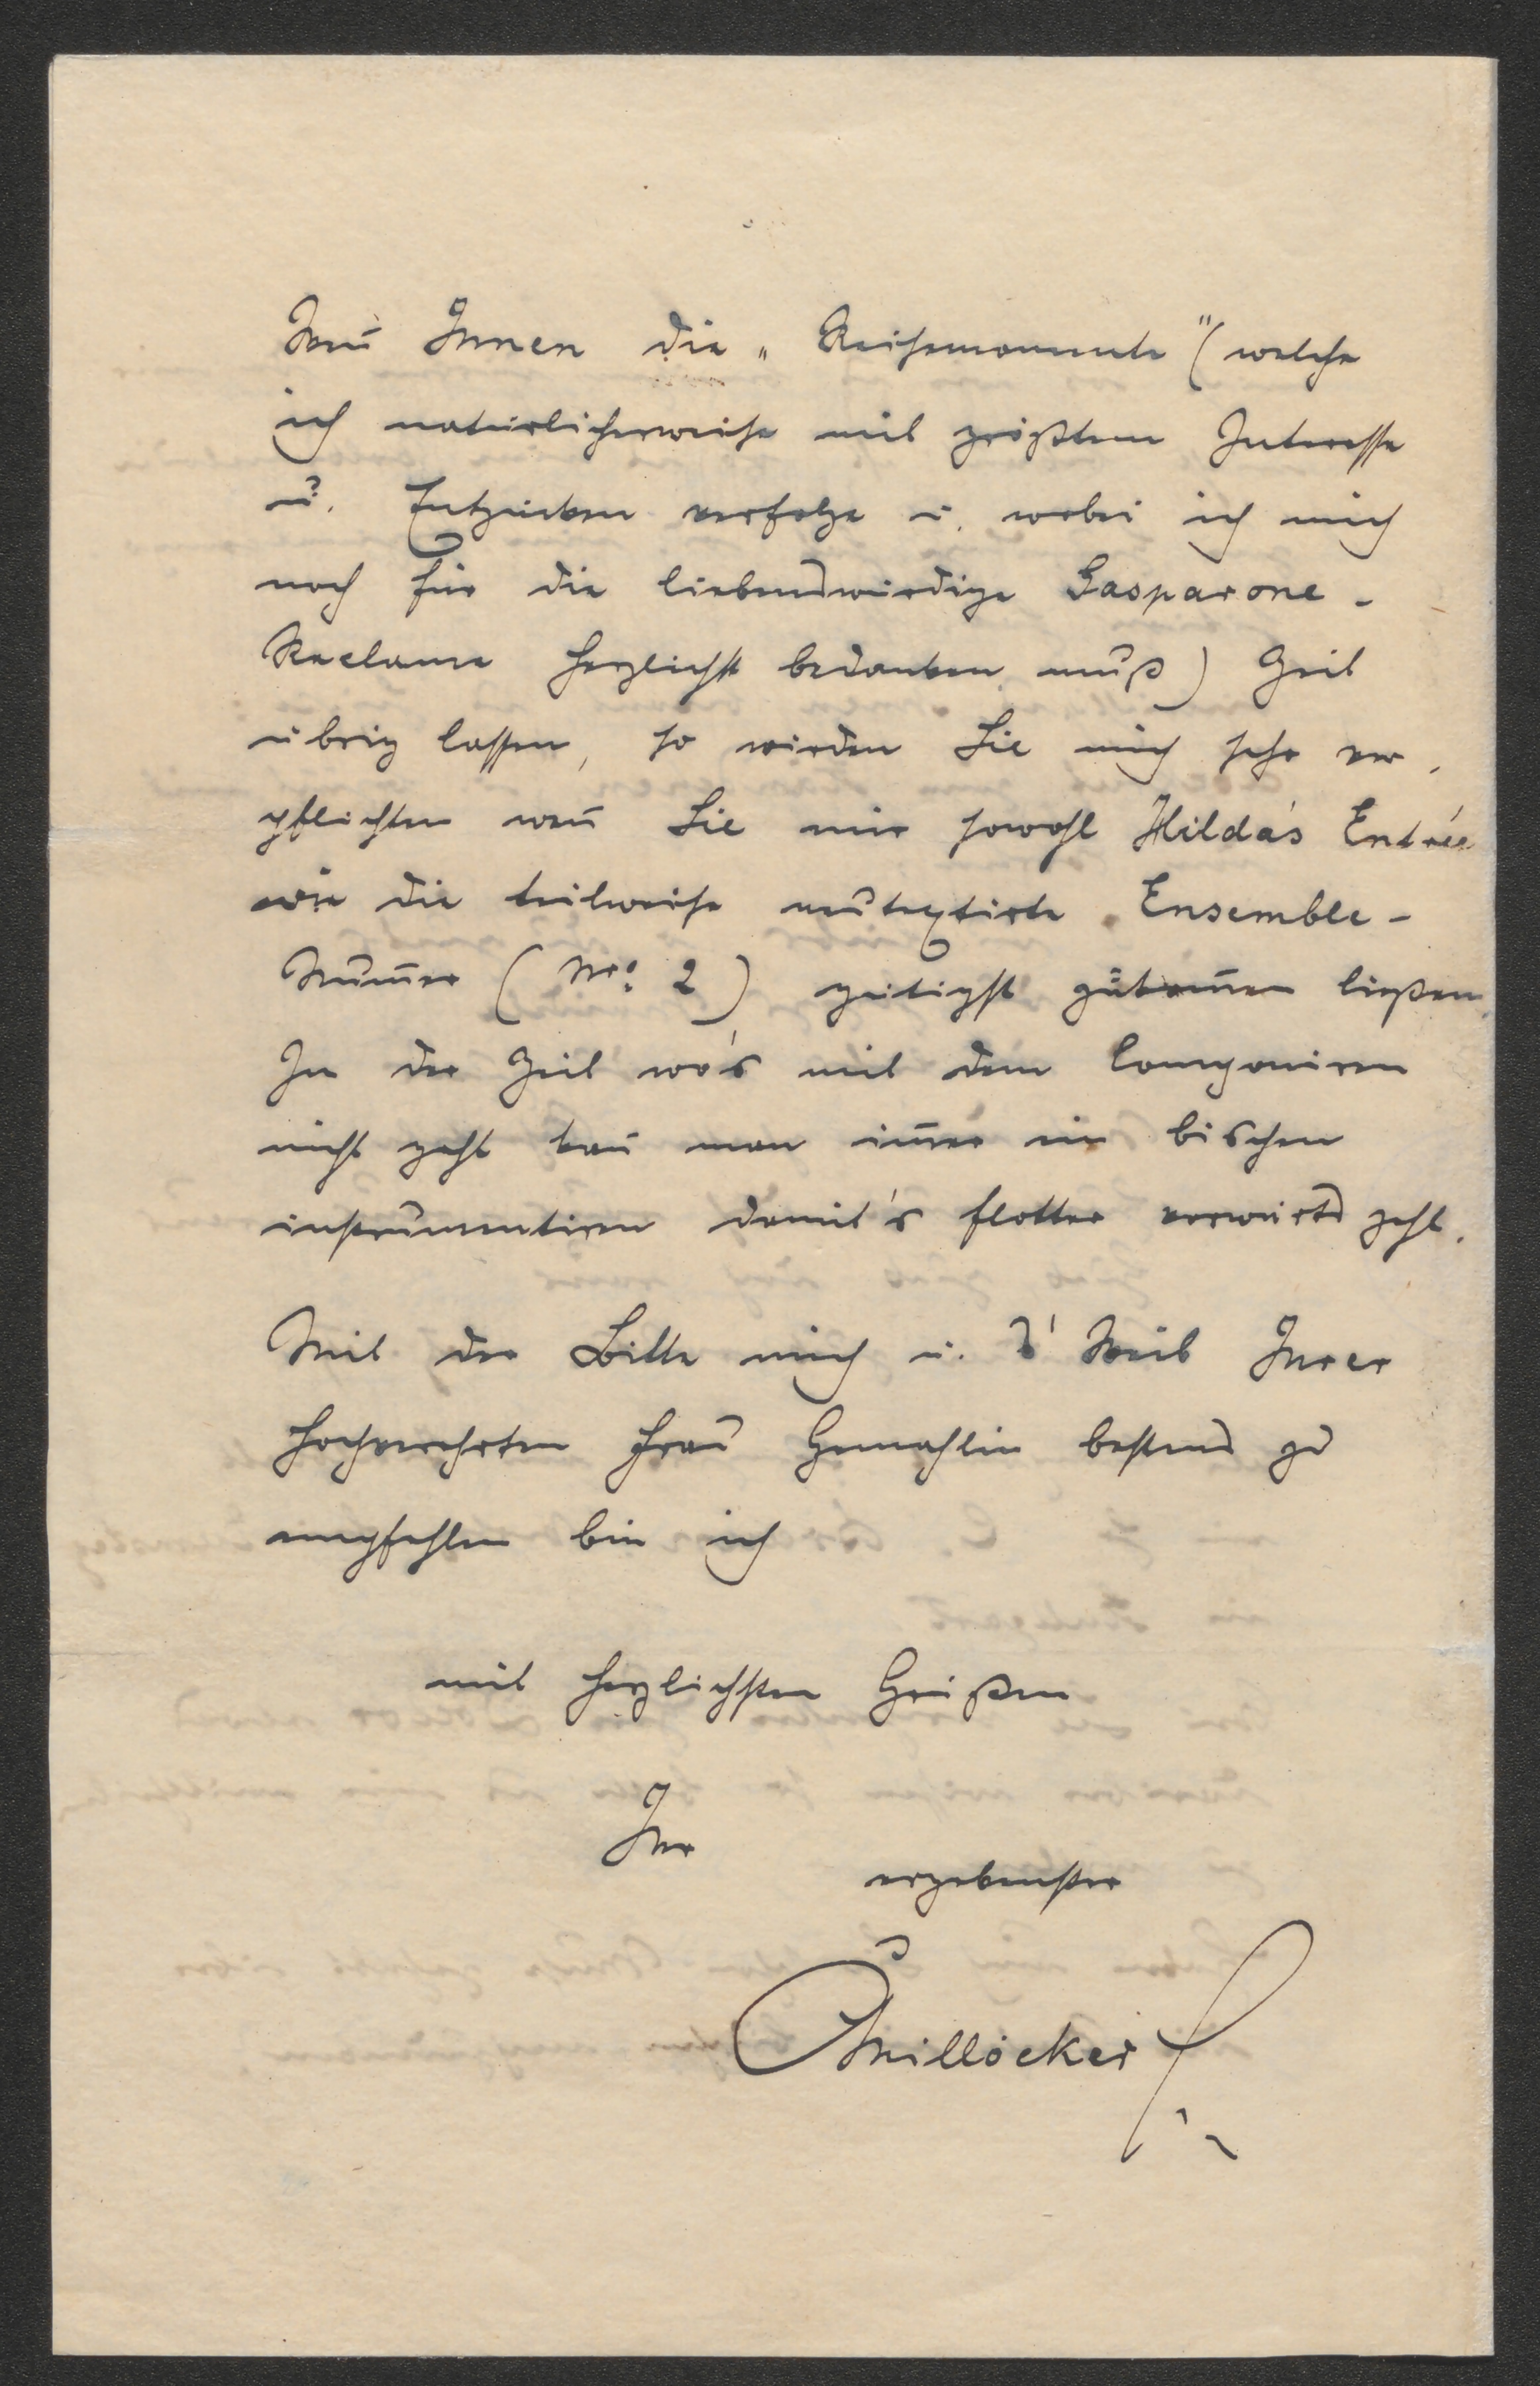 Wen̄ Ihnen die „Reisemomente" (welche
ich natürlicherweise mit größtem Interesse
u. Entzücken verfolge u. wobei ich mich
noch für die liebenswürdige Gasparone-
Reclame herzlichst bedanken muß) Zeit
übrig lassen, so würden Sie mich sehr ver-
pflichten wen̄ Sie mir sowohl Hilda's Entrée
wie die teilweise neutextirte Ensemble-
Num̄er (Nro: 2) zeitigst zukom̄en ließen.
In der Zeit wo's mit dem Componiren
nicht geht kan̄ man im̄er ein bischen
instrumentiren damit's flotter vorwärts geht.
Mit der Bitte mich u. 's Weib Ihrer
hochverehrten Frau Gemahlin bestens zu
empfehlen bin ich
mit herzlichsten Grüßen
Ihr
ergebenster
CMillöcker